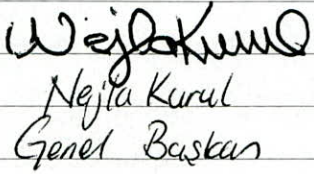 Nejla Kurul
Nejla Kurul
Genel Başkan